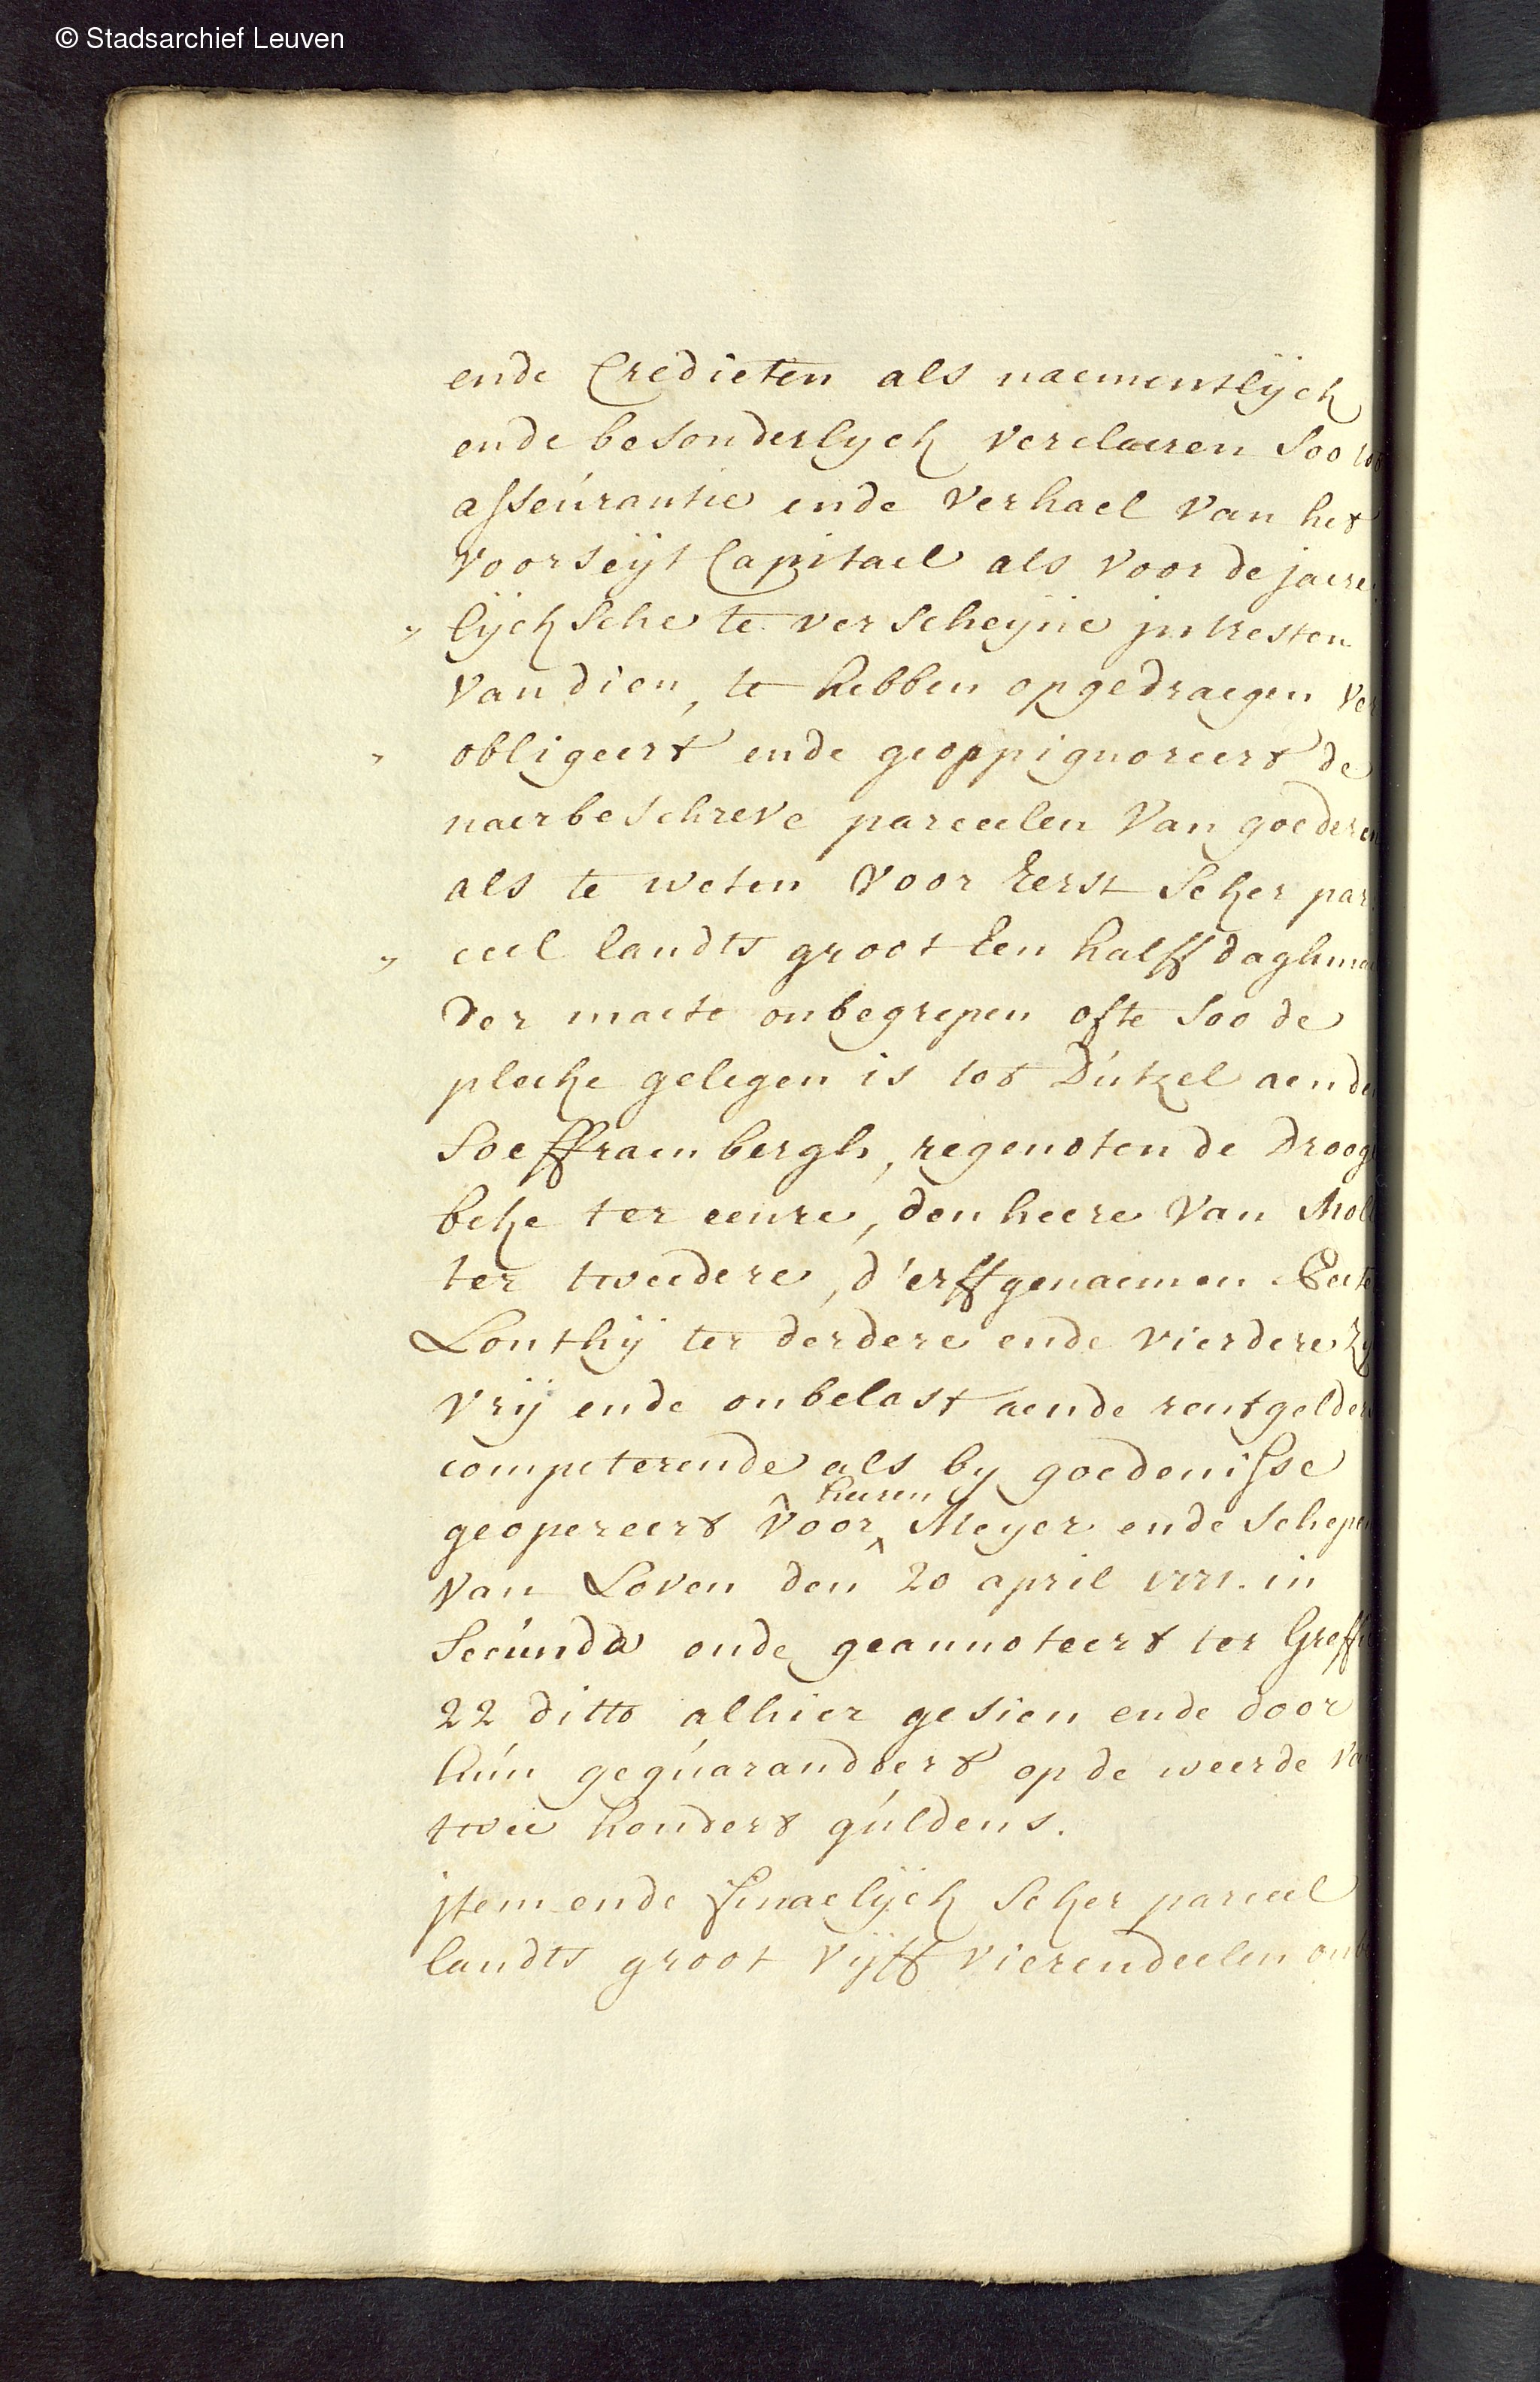 © Stadsarchief Leuven
ende Credieten als naementlijck
ende besonderlyck verclaeren soo tot
asseúrantie ende verhael van het
voorseijt Capitael als voor de jaere
lijcksche te verscheijne jntresten
van dien, te hebben opgedraegen ver
obligeert ende geoppignoreert de
naerbeschreve parceelen van goederen
als te weten voor Eerst seker par
ceel landts groot Een halff daghmael
der maete onbegrepen ofte soo de
plecke gelegen is tot Dútzel aenden
Soeffraenbergh, regenoten de Droogh
beke ter eenre, den heere van
ter tweedere, d'erffgenaemen
Lonthij ter derdere ende vierdere
vrij ende onbelast aende rentgelders
competerende als by goedenisse
heeren
geopereert voor Meyer ende schepen
van Loven den 20 april in
secúnda ende geannoteert ter Greffie
22 ditto alhier gesien ende door
hún gegúarandeert op de weerde van
twee hondert gúldens.
jtem ende finaelijck seker parceel
landts groot vijff vierendeelen